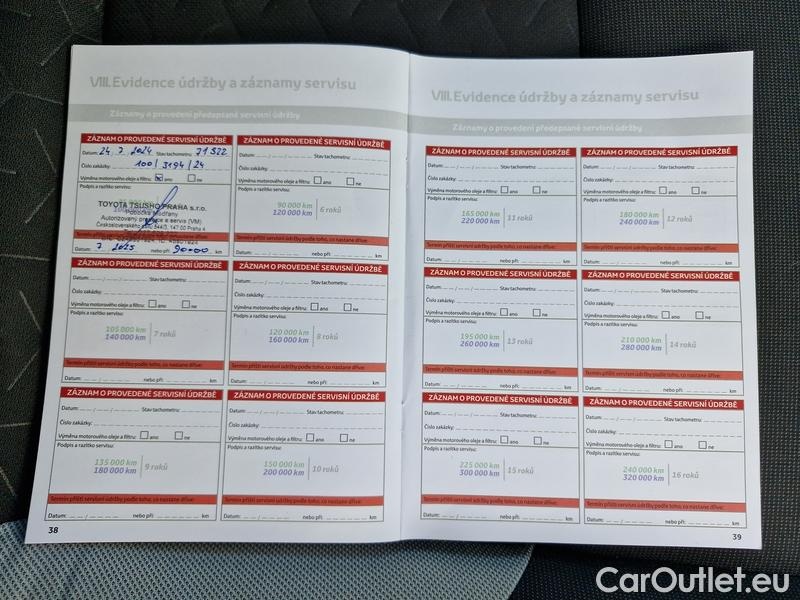 VIII. Evidence údržby a záznamy servisu
Záznamy o provedení předepsané servisní údržby
ZÁZNAM O PROVEDENÉ SERVISNÍ ÚDRŽBĚ
Datum: 24. 7. 2024 Stav tachometru: 71522
Číslo zakázky: 100/3194/24
Výměna motorového oleje a filtru: ano ne
Podpis a razítko servisu:
TOYOTA TSUSHO PRAHA s.r.o.
Autorizovaný prodejce a servis (VM)
147 00 Praha 4
Termín příští servisní údržby podle toho, co nastane dříve:
Datum: 7. 2025 nebo při: 90000 km
ZÁZNAM O PROVEDENÉ SERVISNÍ ÚDRŽBĚ
Datum: Stav tachometru:
Číslo zakázky:
Výměna motorového oleje a filtru: ano ne
Podpis a razítko servisu:
90 000 km
120 000 km
6 roků
Termín příští servisní údržby podle toho, co nastane dříve:
Datum: nebo při: km
ZÁZNAM O PROVEDENÉ SERVISNÍ ÚDRŽBĚ
Datum: Stav tachometru:
Číslo zakázky:
Výměna motorového oleje a filtru: ano ne
Podpis a razítko servisu:
105 000 km
140 000 km
7 roků
Termín příští servisní údržby podle toho, co nastane dříve:
Datum: nebo při: km
ZÁZNAM O PROVEDENÉ SERVISNÍ ÚDRŽBĚ
Datum: Stav tachometru:
Číslo zakázky:
Výměna motorového oleje a filtru: ano ne
Podpis a razítko servisu:
120 000 km
160 000 km
8 roků
Termín příští servisní údržby podle toho, co nastane dříve:
Datum: nebo při: km
ZÁZNAM O PROVEDENÉ SERVISNÍ ÚDRŽBĚ
Datum: Stav tachometru:
Číslo zakázky:
Výměna motorového oleje a filtru: ano ne
Podpis a razítko servisu:
135 000 km
180 000 km
9 roků
Termín příští servisní údržby podle toho, co nastane dříve:
Datum: nebo při: km
ZÁZNAM O PROVEDENÉ SERVISNÍ ÚDRŽBĚ
Datum: Stav tachometru:
Číslo zakázky:
Výměna motorového oleje a filtru: ano ne
Podpis a razítko servisu:
150 000 km
200 000 km
10 roků
Termín příští servisní údržby podle toho, co nastane dříve:
Datum: nebo při: km
38
VIII. Evidence údržby a záznamy servisu
Záznamy o provedení předepsané servisní údržby
ZÁZNAM O PROVEDENÉ SERVISNÍ ÚDRŽBĚ
Datum: Stav tachometru:
Číslo zakázky:
Výměna motorového oleje a filtru: ano ne
Podpis a razítko servisu:
165 000 km
220 000 km
11 roků
Termín příští servisní údržby podle toho, co nastane dříve:
Datum: nebo při: km
ZÁZNAM O PROVEDENÉ SERVISNÍ ÚDRŽBĚ
Datum: Stav tachometru:
Číslo zakázky:
Výměna motorového oleje a filtru: ano ne
Podpis a razítko servisu:
180 000 km
240 000 km
12 roků
Termín příští servisní údržby podle toho, co nastane dříve:
Datum: nebo při: km
ZÁZNAM O PROVEDENÉ SERVISNÍ ÚDRŽBĚ
Datum: Stav tachometru:
Číslo zakázky:
Výměna motorového oleje a filtru: ano ne
Podpis a razítko servisu:
195 000 km
260 000 km
13 roků
Termín příští servisní údržby podle toho, co nastane dříve:
Datum: nebo při: km
ZÁZNAM O PROVEDENÉ SERVISNÍ ÚDRŽBĚ
Datum: Stav tachometru:
Číslo zakázky:
Výměna motorového oleje a filtru: ano ne
Podpis a razítko servisu:
210 000 km
280 000 km
14 roků
Termín příští servisní údržby podle toho, co nastane dříve:
Datum: nebo při: km
ZÁZNAM O PROVEDENÉ SERVISNÍ ÚDRŽBĚ
Datum: Stav tachometru:
Číslo zakázky:
Výměna motorového oleje a filtru: ano ne
Podpis a razítko servisu:
225 000 km
300 000 km
15 roků
Termín příští servisní údržby podle toho, co nastane dříve:
Datum: nebo při: km
ZÁZNAM O PROVEDENÉ SERVISNÍ ÚDRŽBĚ
Datum: Stav tachometru:
Číslo zakázky:
Výměna motorového oleje a filtru: ano ne
Podpis a razítko servisu:
240 000 km
320 000 km
16 roků
Termín příští servisní údržby podle toho, co nastane dříve:
Datum: nebo při: km
39
CarOutlet.eu